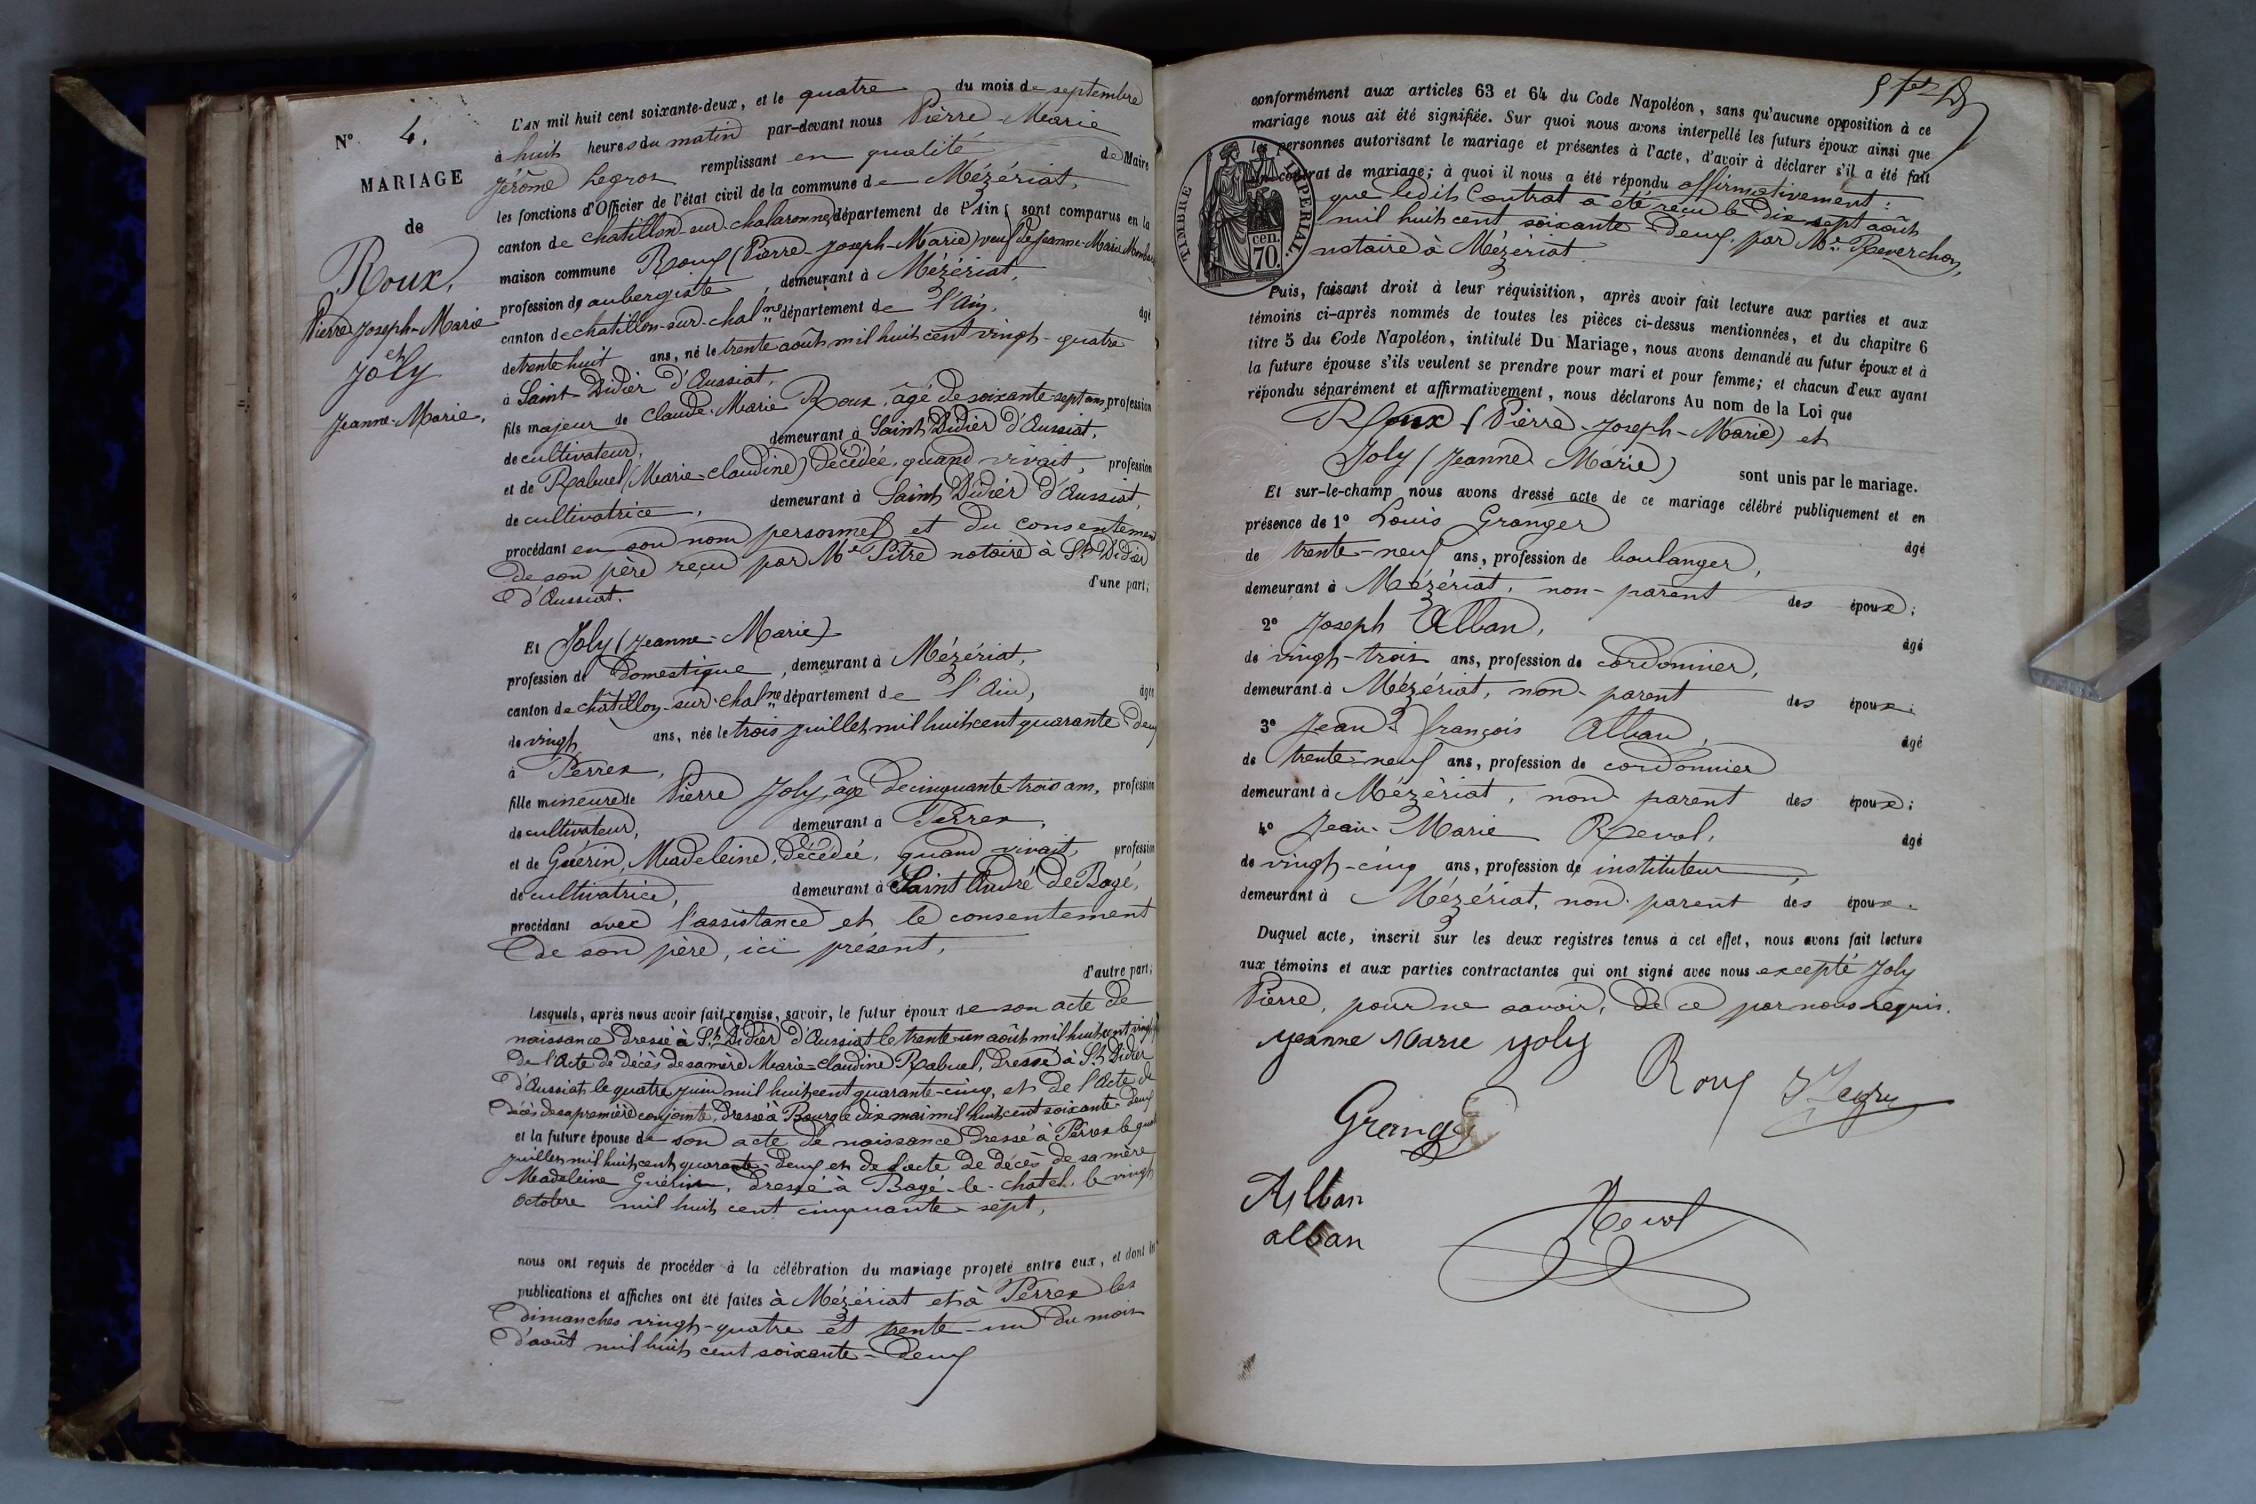 L'AN mil huit cent soixante-deux, et le quatre du mois de septembre
N° 4. à huit heures du matin par-devant nous Pierre-Marie
Jérôme Legros remplissant en qualité de Maire
MARIAGE
les fonctions d'Officier de l'état civil de la commune de Mézériat,
de
canton de chatillon-sur-chalaronne, département de l'Ain; sont comparus en la
Roux,
maison commune Roux (Pierre-Joseph-Marie) veuf de Jeanne-Marie
Pierre-Joseph-Marie
profession de aubergiste, demeurant à Mézériat,
et
canton de chatillon-sur-chalne département de l'Ain, âgé
Joly
de trente huit ans, né le trente août mil huit cent vingt-quatre
Jeanne-Marie.
à Saint-Didier d'Aussiat,
fils majeur de Claude-Marie Roux, âgé de soixante-sept ans, profession
de cultivateur, demeurant à Saint Didier d'Aussiat,
et de Rabuel (Marie-claudine) décédée, quand vivait, profession
de cultivatrice, demeurant à Saint Didier d'Aussiat,
procédant en son nom personnel et du consentement
de son père reçu par Me Pitre notaire à St Didier
d'Aussiat. d'une part;
Et Joly (Jeanne-Marie)
profession de Domestique, demeurant à Mézériat,
canton de châtillon-sur-chalne département de l'Ain, âgée
de vingt ans, née le trois juillet mil huit cent quarante-deux
à Perrex,
fille mineure de Pierre Joly, âgé de cinquante-trois ans, profession
de cultivateur, demeurant à Perrex,
et de Guérin, Madeleine, décédée, quand vivait, profession
de cultivatrice, demeurant à Saint André de Bagé,
procédant avec l'assistance et le consentement
de son père, ici présent,
d'autre part;
Lesquels, après nous avoir fait remise, savoir, le futur époux de son acte de
naissance dressé à St Didier d'Aussiat le trente-un août mil huit cent vingt
De l'Acte de décès de sa mère Marie-claudine Rabuel, dressé à St Didier
d'Aussiat le quatre juin mil huit cent quarante-cinq, et de l'Acte de
décès de sa première conjointe, dressé à Bourg le dix mai mil huit cent soixante-deux
et la future épouse de son acte de naissance dressé à Perrex le quatre
juillet mil huit cent quarante-deux et de l'acte de décès de sa mère
Madeleine Guérin, dressé à Bagé-le-chatel, le vingt
Octobre mil huit cent cinquante-sept,
nous ont requis de procéder à la célébration du mariage projeté entre eux, et dont les
publications et affiches ont été faites à Mézériat et à Perrex les
dimanches vingt-quatre et trente-un du mois
d'août mil huit cent soixante-deux
conformément aux articles 63 et 64 du Code Napoléon, sans qu'aucune opposition à ce
mariage nous ait été signifiée. Sur quoi nous avons interpellé les futurs époux ainsi que
les personnes autorisant le mariage et présentes à l'acte, d'avoir à déclarer s'il a été fait
un contrat de mariage; à quoi il nous a été répondu affirmativement:
que ledit Contrat a été reçu le dix sept août
mil huit cent soixante-deux, par Me Reverchon,
notaire à Mézériat.
TIMBRE IMPERIAL.
cen.
70.
Puis, faisant droit à leur réquisition, après avoir fait lecture aux parties et aux
témoins ci-après nommés de toutes les pièces ci-dessus mentionnées, et du chapitre 6
titre 5 du Code Napoléon, intitulé Du Mariage, nous avons demandé au futur époux et à
la future épouse s'ils veulent se prendre pour mari et pour femme; et chacun d'eux ayant
répondu séparément et affirmativement, nous déclarons Au nom de la Loi que
Roux (Pierre-Joseph-Marie) et
Joly (Jeanne Marie) sont unis par le mariage.
Et sur-le-champ nous avons dressé acte de ce mariage célébré publiquement et en
présence de 1° Louis Granger âgé
de trente-neuf ans, profession de boulanger,
demeurant à Mézériat, non-parent des époux;
2° Joseph Alban, âgé
de vingt-trois ans, profession de cordonnier,
demeurant à Mézériat, non-parent des époux;
3° Jean-françois Alban, âgé
de trente-neuf ans, profession de cordonnier
demeurant à Mézériat, non parent des époux;
4° Jean-Marie Revol, âgé
de vingt-cinq ans, profession de instituteur,
demeurant à Mézériat, non parent des époux.
Duquel acte, inscrit sur les deux registres tenus à cet effet, nous avons fait lecture
aux témoins et aux parties contractantes qui ont signé avec nous excepté Joly
Pierre, pour ne savoir, de ce par nous requis.
Jeanne Marie Joly
Roux
Granger
Alban
alban
Revol